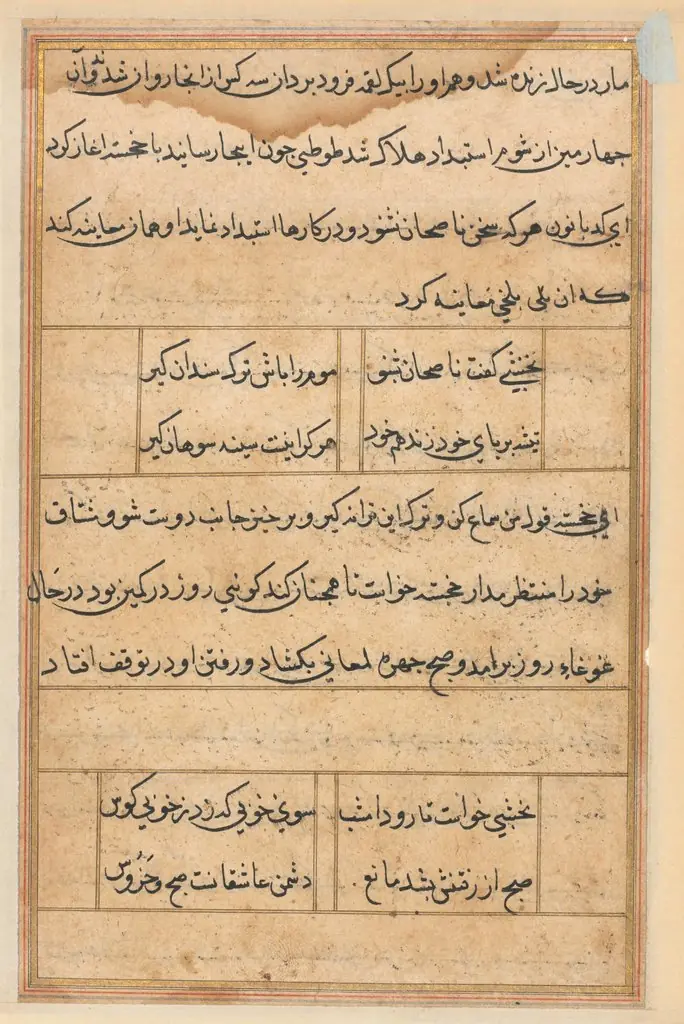 مار در حال زنده شد و همرا و را بیک لقمه فرو برد ان سه کس از انجا روان شدند و آن
چهارمین از شوم استبداد هلاک شد طوطی چون اینجا رسانید با خجسته اغاز کرد
ای کدبانون هر که سخن ناصحان نشنود و در کارها استبداد نماید او همان معاینه کند
که ان بلخی معاینه کرد
نخشبی گفت ناصحان بشنو
موم را باش ترک سندان گیر
تیشه بر پای خود زند هم خود
هر کرا نیت سینه سوهان گیر
ای خجسته قول من سماع کن و ترک این ترانه گیر و بر خیز جانب دوست شو و مشتاق
خود را منتظر مدار خجسته خواست تا همچنان کند کوئی روز در کمین بود در حال
غوغاء روز برامد و صبح چهره لمعانی بکشاد و رفتن او در توقف افتاد
نخشبی خواست تا رود امشب
سوی خوبی که زد ز خوبی کوس
صبح از رفتنش بشد مانع
دشمن عاشقانست صبح و خروس